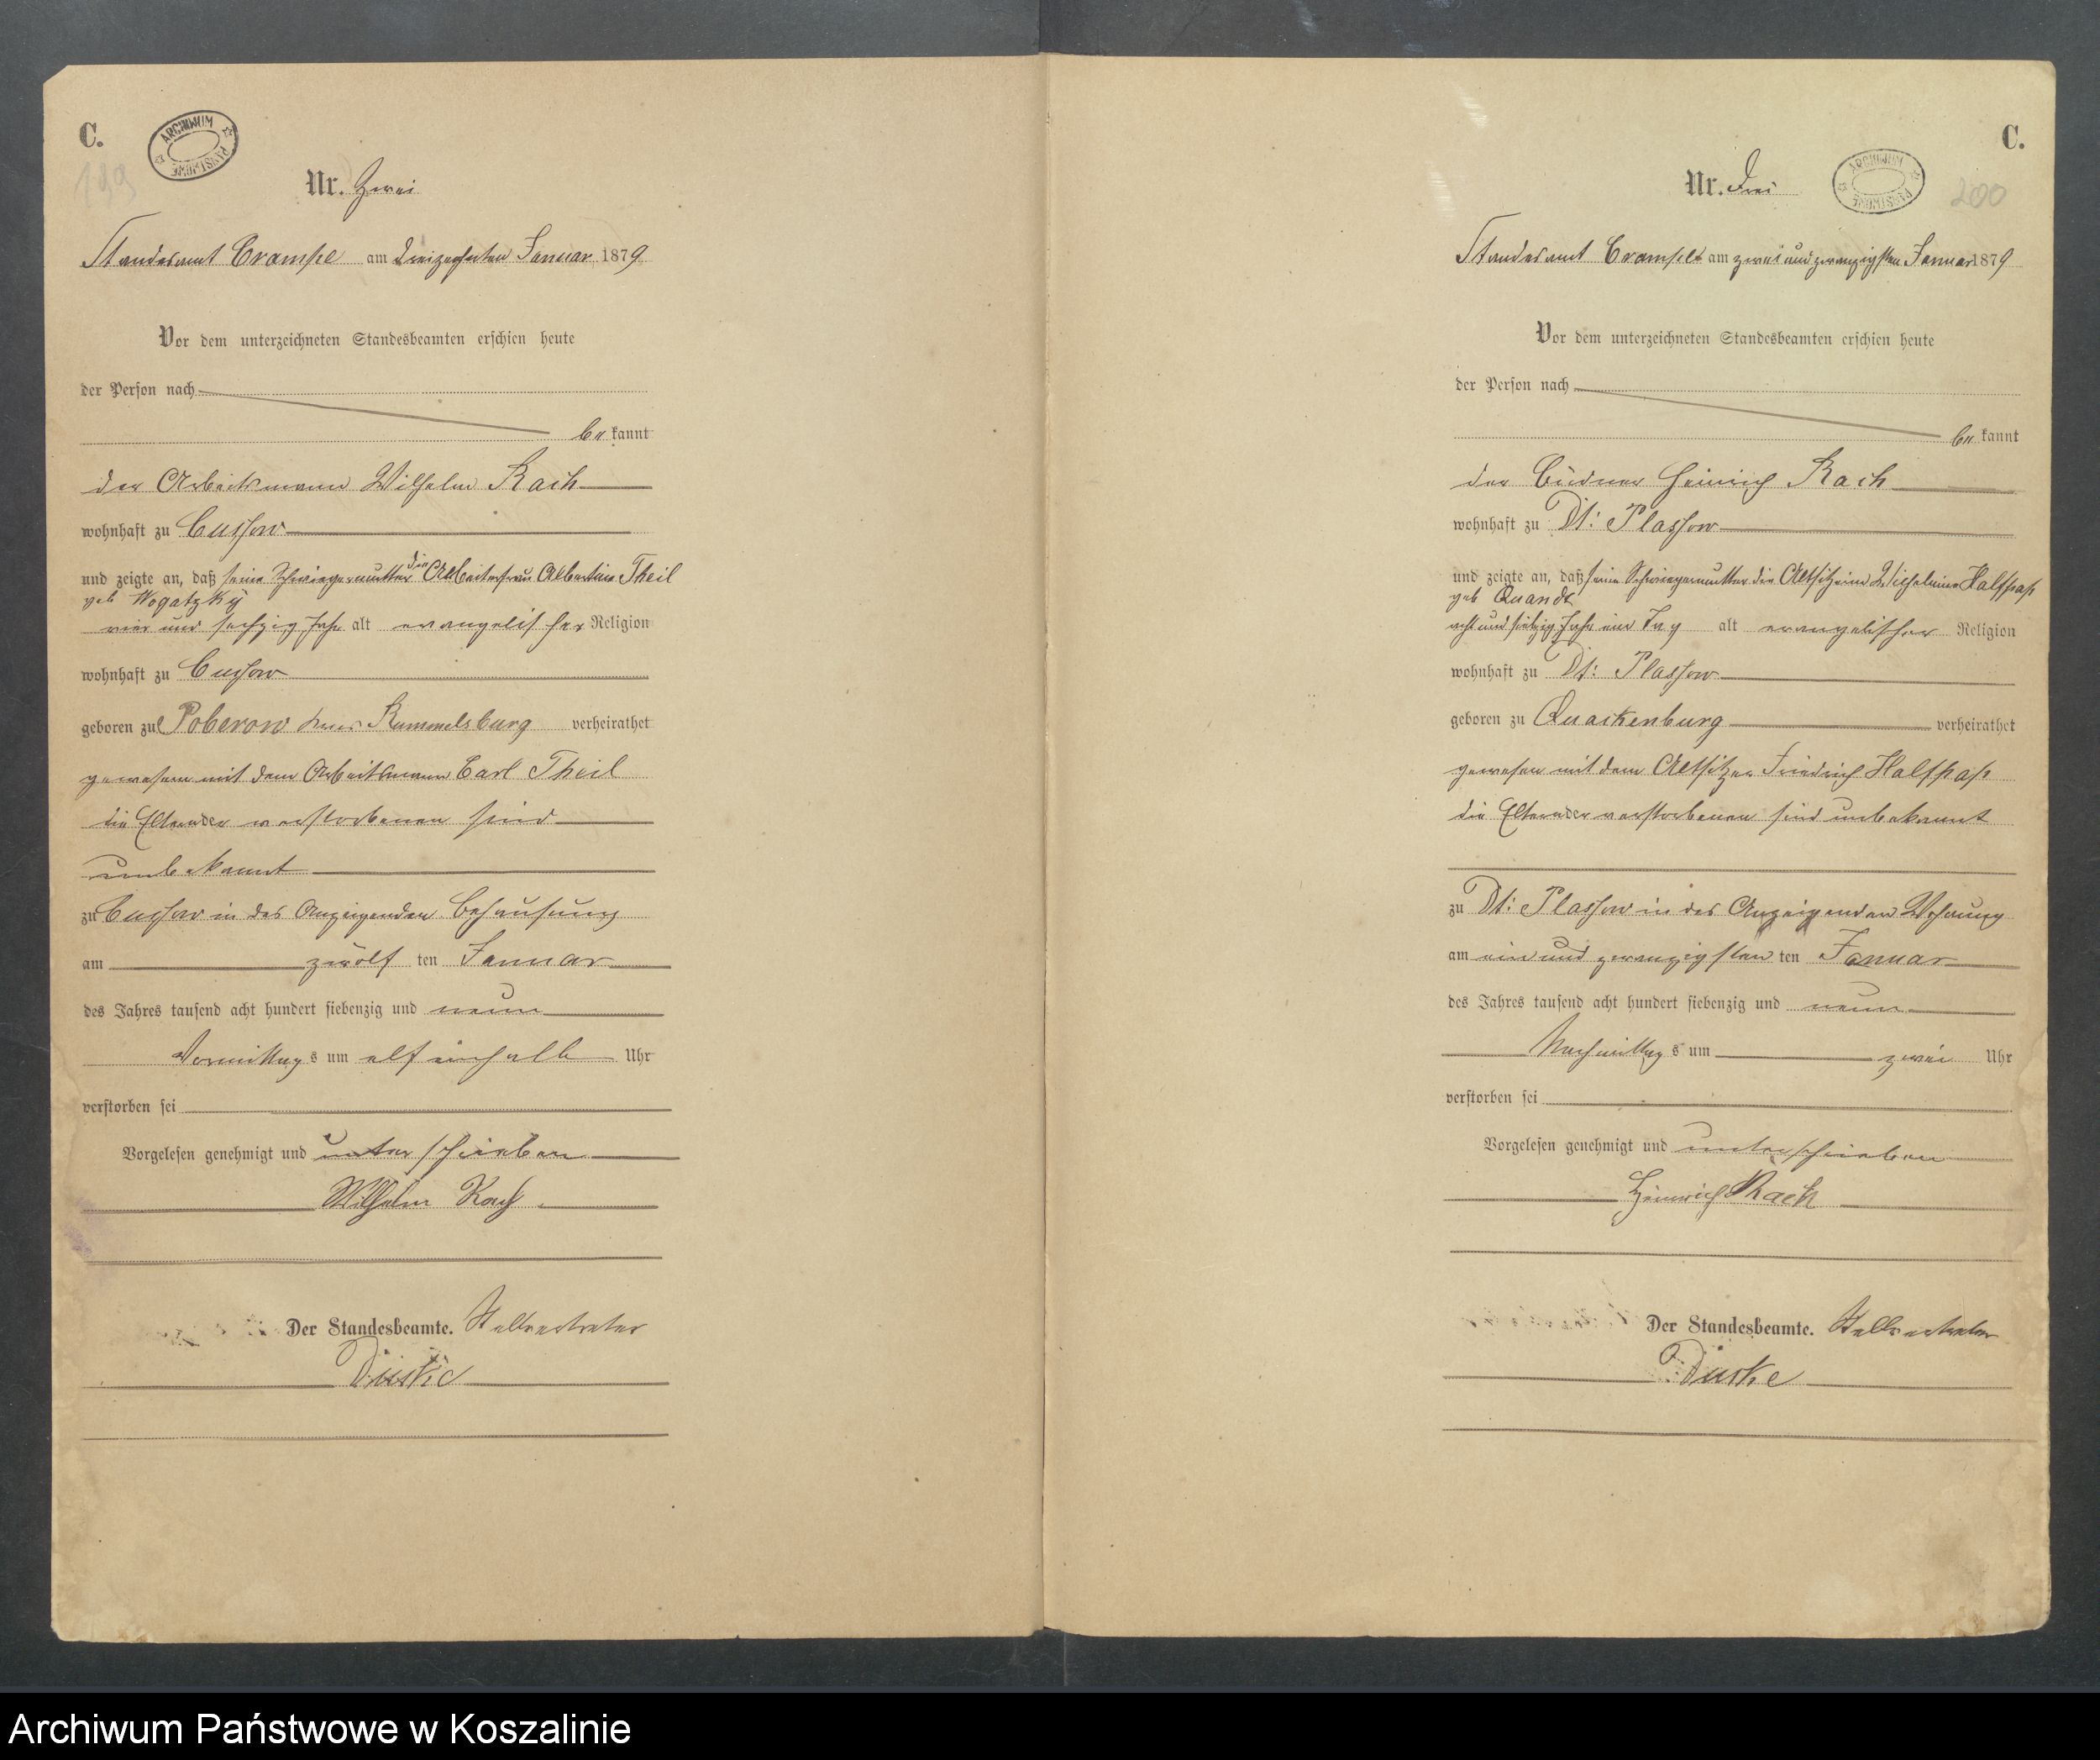 C.
ARCHIWUM PAŃSTWOWE
199
Nr. Zwei
Standesamt Crampe am dreizehnten Januar 1879
Vor dem unterzeichneten Standesbeamten erschien heute
der Person nach
be kannt
der Arbeitsmann Wilhelm Rach
wohnhaft zu Cussow
und zeigte an, daß seine Schwiegermutter die Arbeiterfrau Albertine Theil
geb Wogatzky
vier und sechzig Jahr alt evangelischer Religion
wohnhaft zu Cussow
geboren zu Poberow Rummelsburg verheirathet
gewesen mit dem Arbeitsmann Carl Theil
die Eltern der verstorbenen sind
unbekannt
zu Cussow in des Anzeigenden Behausung
am zwölf ten Januar
des Jahres tausend acht hundert siebenzig und neun
Vormittags um elf einhalb Uhr
verstorben sei
Vorgelesen genehmigt und unterschrieben
Wilhelm Rach
Der Standesbeamte. Stellvertreter
Duske
C.
ARCHIWUM PAŃSTWOWE
200
Nr. Drei
Standesamt Crampe am zwei und zwanzigsten Januar 1879
Vor dem unterzeichneten Standesbeamten erschien heute
der Person nach
be kannt
der Büdner Heinrich Rach
wohnhaft zu Dt: Plassow
und zeigte an, daß seine Schwiegermutter die Altsitzerin Wilhelmine Halfpap
geb Quandt
acht und siebzig Jahr ein Tag alt evangelischer Religion
wohnhaft zu Dt: Plassow
geboren zu Quackenburg verheirathet
gewesen mit dem Altsitzer Friedrich Halfpap
die Eltern der verstorbenen sind unbekannt
zu Dt: Plassow in des Anzeigenden Wohnung
am ein und zwanzigsten ten Januar
des Jahres tausend acht hundert siebenzig und neun
Nachmittags um zwei Uhr
verstorben sei
Vorgelesen genehmigt und unterschrieben
Heinrich Rach
Der Standesbeamte. Stellvertreter
Duske
Archiwum Państwowe w Koszalinie